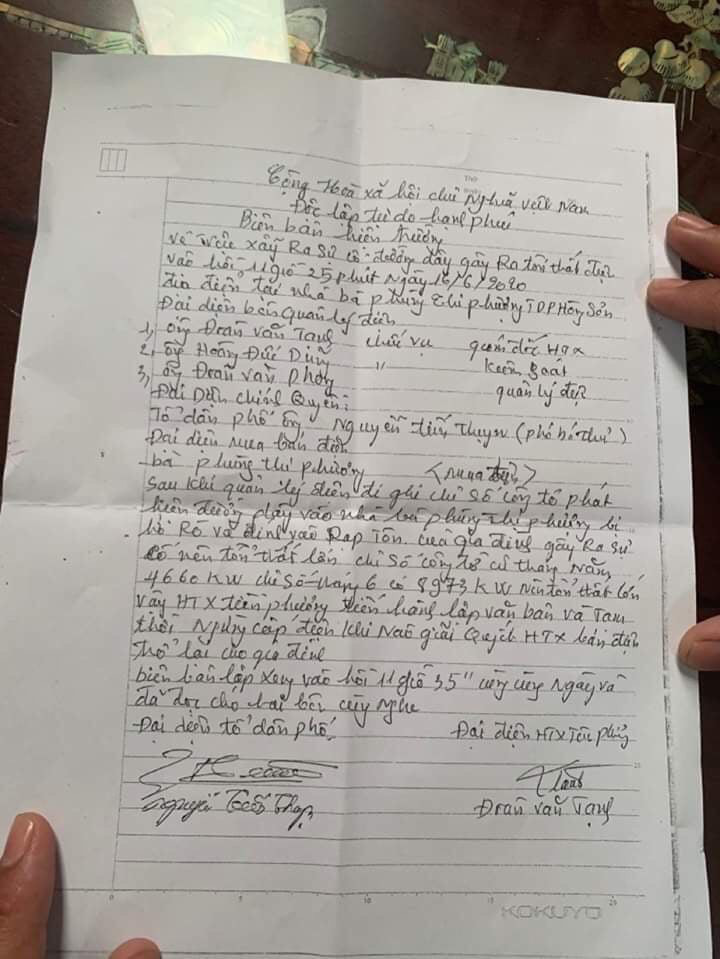 Cộng Hoà xã hội chủ Nghĩa việt Nam
Độc lập tự do hạnh phúc
Biên bản hiện trường
về việc xẩy Ra Sự cố đường dây gây Ra tổn thất điện
vào hồi 11 giờ 25 phút Ngày 16/6/2020
địa điểm tại nhà bà phùng thị phượng TDP Hồng Sơn
Đại diện bên quản lý điện
1, ông Đoàn văn Tạng chức vụ giám đốc HTX
2, ông Hoàng Đức Dũng " kiểm soát
3, ông Đoàn văn phong quản lý điện
Đại diện chính Quyền:
Tổ dân phố ông Nguyễn tiến (phó bí thư)
Đại diện mua bán điện
bà phùng thị phượng <mua điện>
sau khi quản lý điện đi ghi chỉ số công tơ phát
hiện đường dây vào nhà bà phùng thị phượng bị
hở Rò và dính vào Rạp Tôn của gia đình gây Ra sự
cố nên tổn thất lớn chỉ số công tơ cũ tháng Năm
4660 KW chỉ số tháng 6 có 8973 KW Nên tổn thất lớn
vậy HTX tiền phương tiến hành lập văn bản và Tạm
thời Ngừng cấp điện khi Nào giải Quyết HTX bán điện
trở lại cho gia đình
biên bản lập xong vào hồi 11 giờ 35" cùng Ngày và
đã đọc cho hai bên cùng Nghe
Đại diện tổ dân phố Đại diện HTX
Đoàn văn Tạng
0 5 10 15 20
KOKUYO